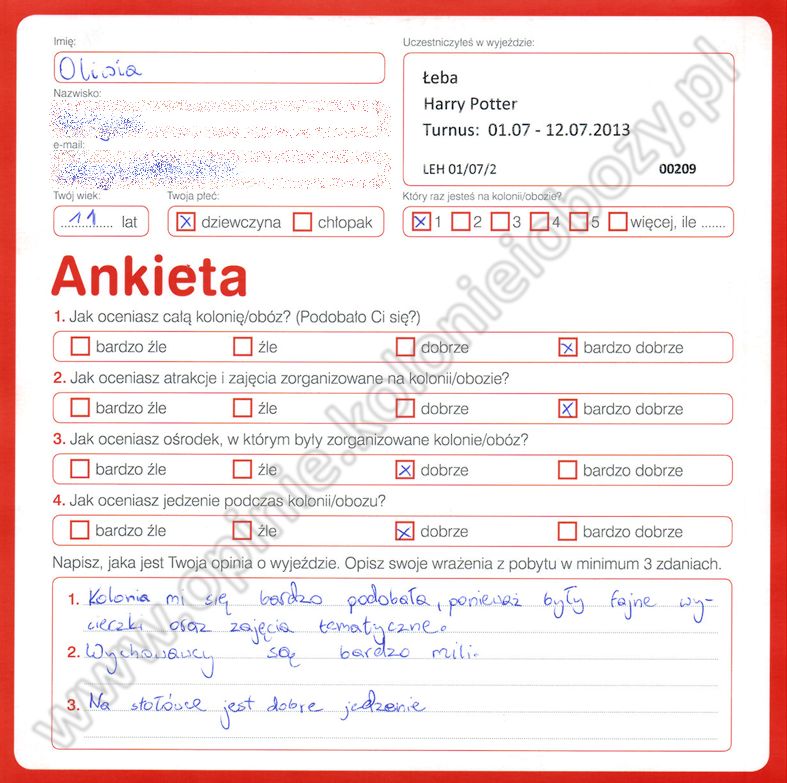 Imię:
Oliwia
Uczestniczyłeś w wyjeździe:
Łeba
Harry Potter
Turnus: 01.07 - 12.07.2013
LEH 01/07/2 00209
Nazwisko:
e-mail:
Twój wiek:
11 lat
Twoja płeć:
dziewczyna chłopak
Który raz jesteś na kolonii/obozie?
1 2 3 4 5 więcej, ile .......
Ankieta
1. Jak oceniasz całą kolonię/obóz? (Podobało Ci się?)
bardzo źle źle dobrze bardzo dobrze
2. Jak oceniasz atrakcje i zajęcia zorganizowane na kolonii/obozie?
bardzo źle źle dobrze bardzo dobrze
3. Jak oceniasz ośrodek, w którym były zorganizowane kolonie/obóz?
bardzo źle źle dobrze bardzo dobrze
4. Jak oceniasz jedzenie podczas kolonii/obozu?
bardzo źle źle dobrze bardzo dobrze
Napisz, jaka jest Twoja opinia o wyjeździe. Opisz swoje wrażenia z pobytu w minimum 3 zdaniach.
1. Kolonia mi się bardzo podobała, ponieważ były fajne wy-
cieczki oraz zajęcia tematyczne.
2. Wychowawcy są bardzo mili.
3. Na stołówce jest dobre jedzenie
www.opinie.kolonieiobozy.pl